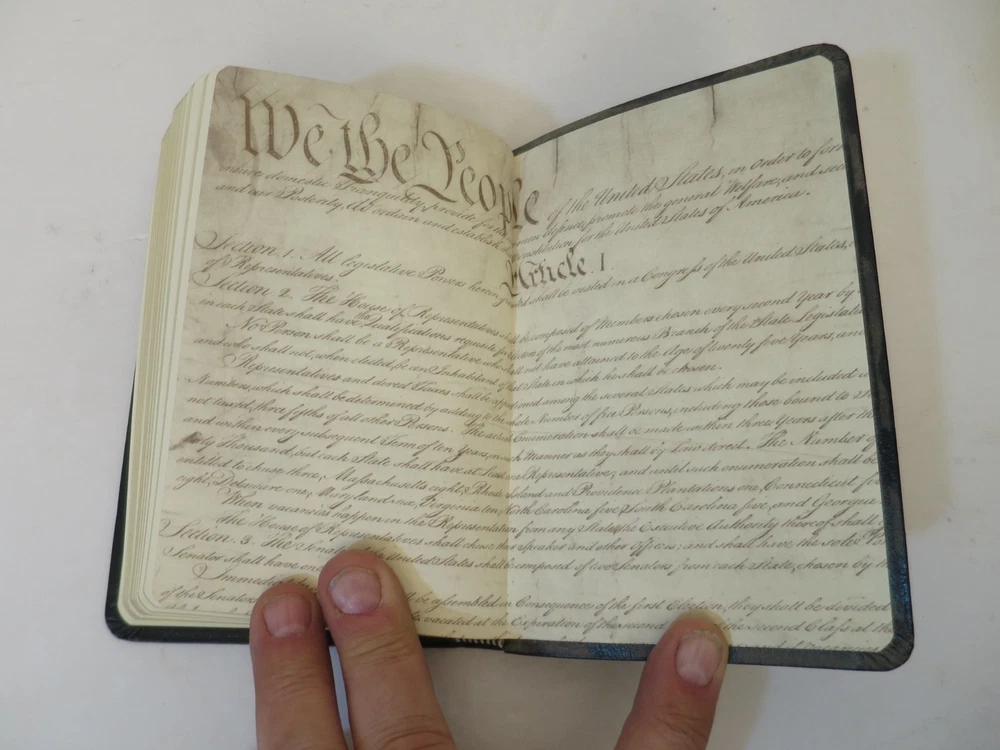 We the People of the United States, in Order to form
insure domestic Tranquility, provide for the defence, promote the general Welfare, and
and our Posterity, do ordain and establish Constitution for the United States of America.
Article. I.
Section. 1. All legislative Powers herein shall be vested in a Congress of the United States,
of Representatives.
Section. 2. The House of Representatives composed of Members chosen every second Year by
in each State shall have the Qualifications requisite for of the most numerous Branch of the State
No Person shall be a Representative who not have attained to the Age of twenty five Years,
and who shall not, when elected, be an Inhabitant of State in which he shall be chosen.
Representatives and direct Taxes shall be among the several States which may be included
Numbers, which shall be determined by adding to the Number of free Persons, including those bound to
not taxed, three fifths of all other Persons. The actual Enumeration shall be made within three Years after
and within every subsequent Term of ten Years, in such Manner as they shall by Law direct. The Number of
thirty Thousand, but each State shall have at Least Representative; and until such enumeration shall be
entitled to chuse three, Massachusetts eight, Rhode Island and Providence Plantations one, Connecticut
eight, Delaware one, Maryland six, Virginia ten, North Carolina five, South Carolina five, and Georgia
When vacancies happen in the Representation from any State, the Executive Authority thereof shall
The House of Representatives shall chuse their Speaker and other Officers; and shall have the sole
Section. 3. The Senate United States shall be composed of two Senators from each State, chosen by
Senator shall have one
be assembled in Consequence of the first Election, they shall be divided
of the Senators vacated at the Expiration of the second the second Class at the